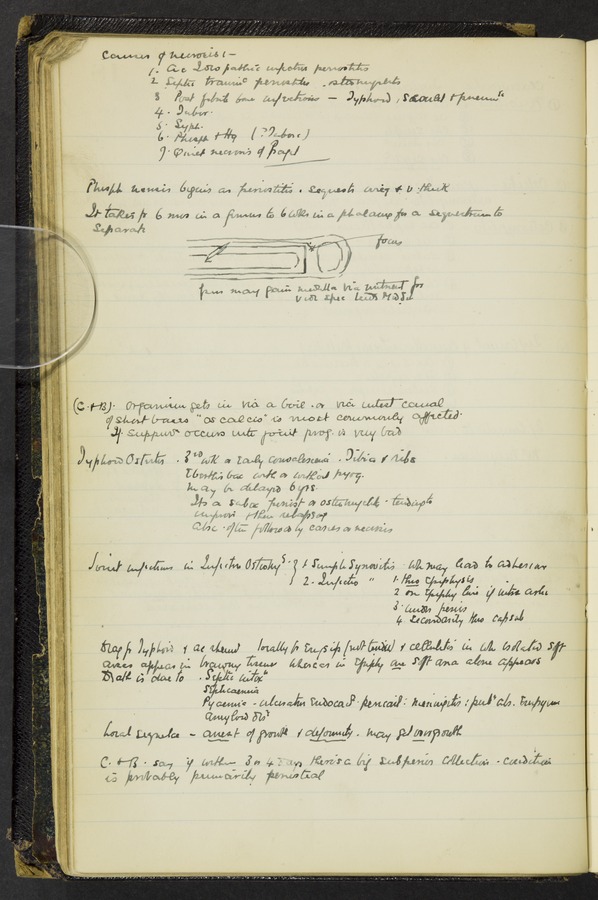 Causes of necrosis :-
1. Ac Idiopathic infective periostitis
2 Septic traumc periostitis . osteomyelitis
3 Post febrile bone infections – Typhoid, Scarlet + pneums
4. Tuber.
5. Syph.
6. Phosph + Hg (? Tuberc)
7. Quiet necrosis of Paget
Phosph necrosis begins as periostitis . Sequestr & v. thick
It takes fr 6 mos in a femur to 6 wks in a phalanx for a sequestrum to
separate
focus
from may gain medulla via nutrient for
(C. + B). Organism gets in via a boil . or via intest canal
of short bones "os calcis" is most commonly affected.
If suppurn occurs into joint prog. is very bad
Typhoid Osteitis . 3rd wk or Early convalescence . Tibia & ribs
Eberths bac with or without pyog.
may be delayed 6 yrs.
Its a subac periost or osteomyelitis - tending to
improve & then relapsing
Also often followed by caries or necrosis
Joint infections in Infective Osteomys. } 1 Simple Synovitis . wh may lead to adhesions
2. Infective " 1. thro Epiphysis
2 on Epiphy line if intra artic
3. under perios
4 Secondarily thro capsule
Diag fr Typhoid & ac rheum locally fr Erysip (not tender) & cellulitis in wh isolated soft
areas appear in brawny tissue whereas in Epiphy one soft area alone appears
Death is due to . Septic intoxn
Septicaemia
Pyaemia - ulcerative Endocard. pericard : meningitis : pulm abs. Empyema
amyloid dis
Local sequelae – arrest of growth & deformity . may get overgrowth
C. + B. say if within 3 or 4 days there's a big subperios collection - condition
is probably primarily periosteal